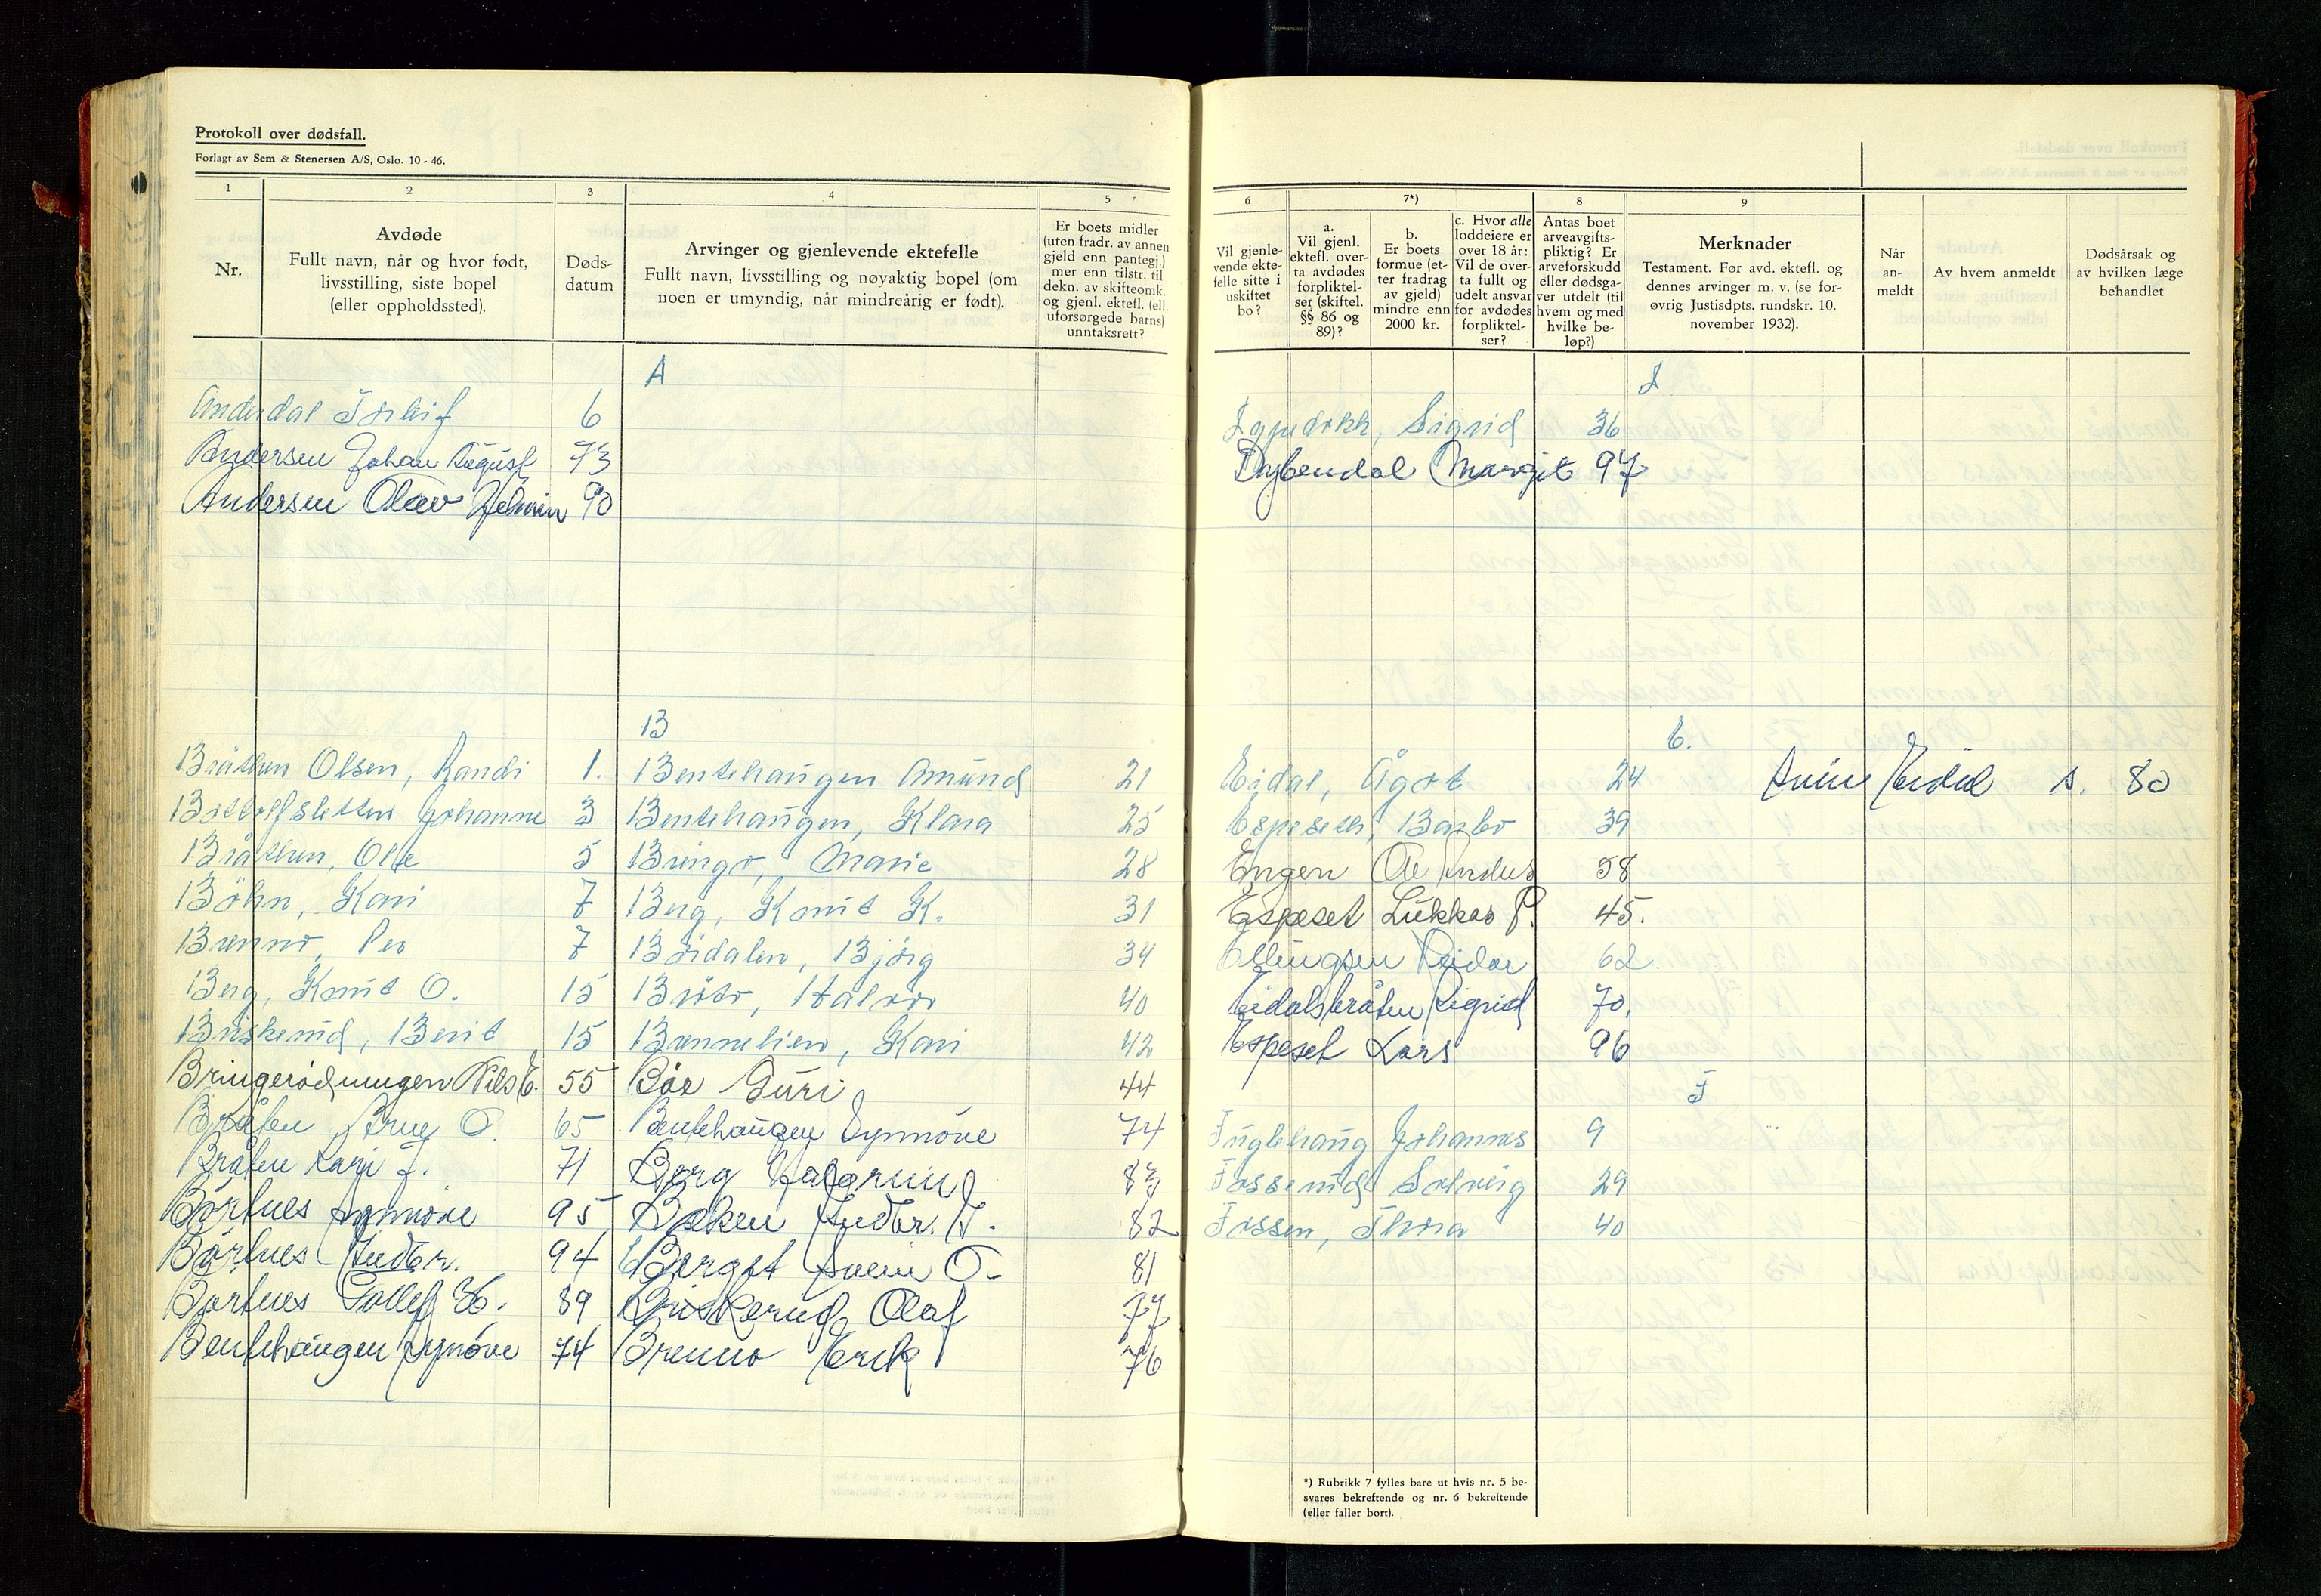 Protokoll over dødsfall.
Forlagt av Sem & Stenersen A/S, Oslo. 10 - 46.
1
2
3
4
5
Nr.
Avdøde
Fullt navn, når og hvor født,
livsstilling, siste bopel
(eller oppholdssted).
Døds-
datum
Arvinger og gjenlevende ektefelle
Fullt navn, livsstilling og nøyaktig bopel (om
noen er umyndig, når mindreårig er født).
Er boets midler
(uten fradr. av annen
gjeld enn pantegj.)
mer enn tilstr. til
dekn. av skifteomk.
og gjenl. ektefl. (ell.
uforsørgede barns)
unntaksrett?
A
Anderdal Torleif 6
Andersen Johan August 73
Andersen Olav 90
B
Bråthen Olsen, Randi 1. Bentehaugen Amund 21
Bottolfsletten Johanne 3 Bentehaugen, Klara 25
Bråthen, Ole 5 Bringo, Marie 28
Böhn, Kari 7 Berg, Knut K. 31
Brenno, Per 7 Böidalen, Bjørg 34
Berg, Knut O. 15 Bröto, Halvor 40
Briskerud, Berit 15 Brennelien, Kari 42
Bringerödningen Nils E. 55 Böe Guri 44
Bråten Arne O. 65 Bentehaugen Synnöve 74
Bråten Kari J. 71 Berg 83
Börtnes Synnöve 95 Bakken Endre. T. 82
Börtnes Endre. 94 Berget Svein O. 81
Börtnes Tollef 89 Briskerud Olaf 77
Bentehaugen Synöve 74 Brenno Erik 76
6
7*)
8
9
Vil gjenle-
vende ekte-
felle sitte i
uskiftet
bo?
a.
Vil gjenl.
ektefl. over-
ta avdødes
forpliktel-
ser (skiftel.
§§ 86 og
89)?
b.
Er boets
formue (et-
ter fradrag
av gjeld)
mindre enn
2000 kr.
c. Hvor alle
loddeiere er
over 18 år:
Vil de over-
ta fullt og
udelt ansvar
for avdødes
forpliktel-
ser?
Antas boet
arveavgifts-
pliktig? Er
arveforskudd
eller dødsga-
ver utdelt (til
hvem og med
hvilke be-
løp?)
Merknader
Testament. Før avd. ektefl. og
dennes arvinger m. v. (se for-
øvrig Justisdpts. rundskr. 10.
november 1932).
Når
an-
meldt
Av hvem anmeldt
Dødsårsak og
av hvilken læge
behandlet
Sigrid 36
Dybendal Margit 97
E.
Eidal, Ågot 24 Svein Eidal s. 80
Espeseth, Barbo 39
Engen 58
Espeset Lukkas P. 45.
Ellingsen Reidar 62.
Eidalsbråten Sigrid 70.
Espeset Lars 96
F
Fuglehaug Johannes 9
Fosserud Solveig 29
Fossen, Thora 40
*) Rubrikk 7 fylles bare ut hvis nr. 5 be-
svares bekreftende og nr. 6 bekreftende
(eller faller bort).